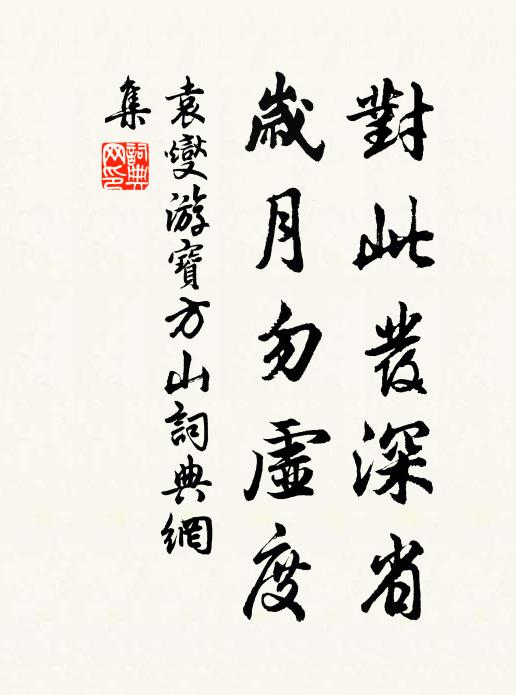 對此發深省
歲月勿虛度
袁燮游寶方山詞典網
集
詞典
网印